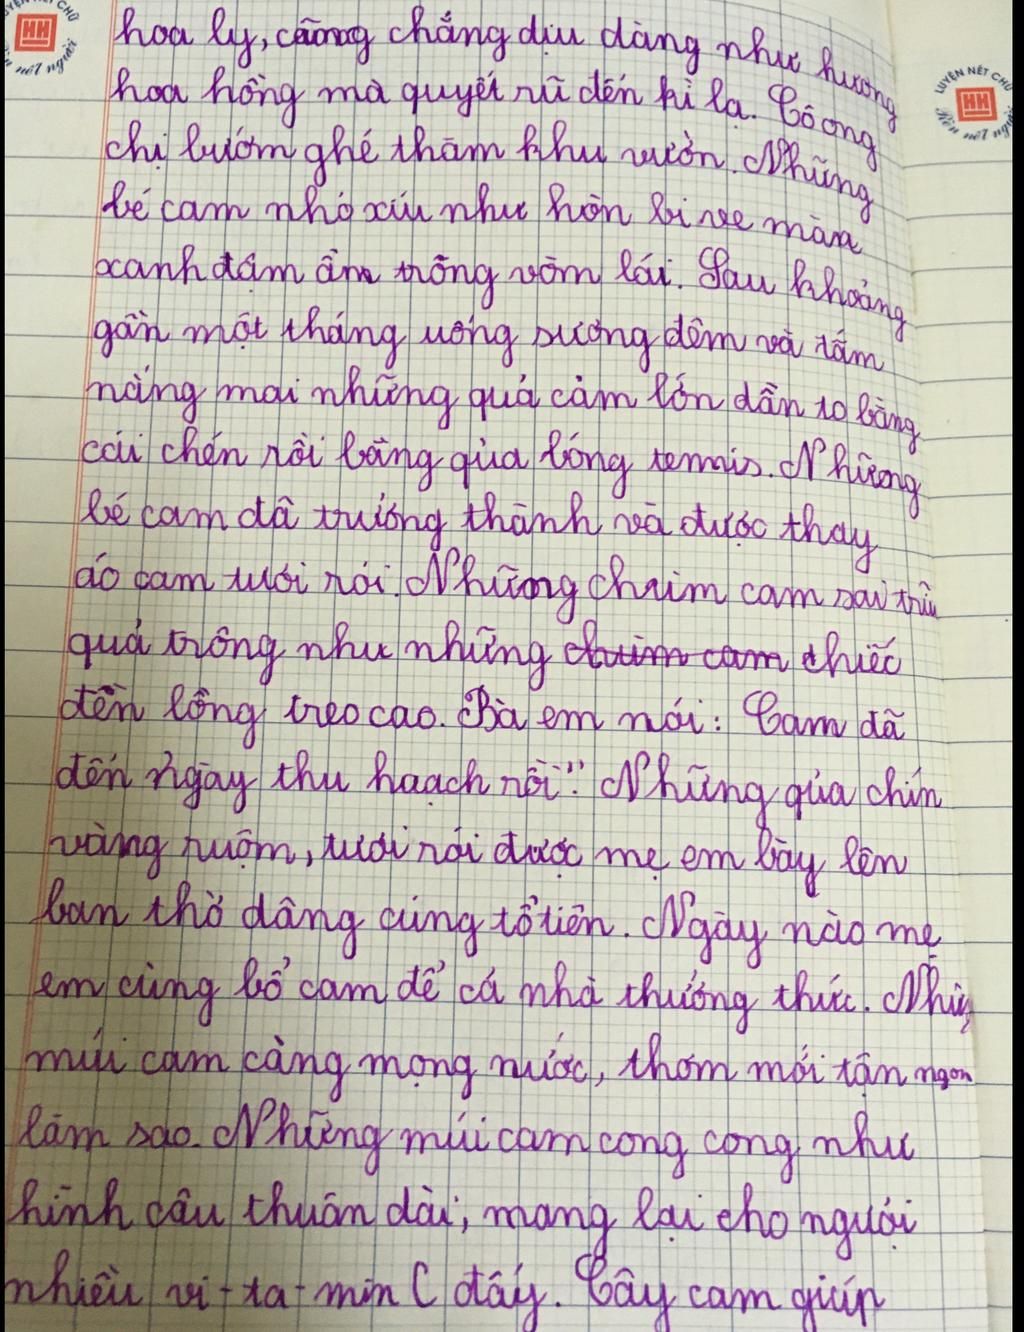 LUYỆN NẾT CHỮ
HH
Rèn nết người
LUYỆN NẾT CHỮ
HH
Rèn nết người
hoa ly, cũng chẳng dịu dàng như hương
hoa hồng mà quyết rũ đến kì lạ. Cô ong
chị bướm ghé thăm khu vườn. Những
bé cam nhỏ xíu như hòn bi ve màu
xanh đậm ẩn trông vòm lái. Sau khoảng
gần một tháng uống sương đêm và tắm
nắng mai những quả cam lớn dần to bằng
cái chén rồi bằng qủa bóng tennis. Những
bé cam đã trưởng thành và được thay
áo cam tươi rói. Những chùm cam sai trĩu
quả trông như những chùm cam chiếc
đèn lồng treo cao. Bà em nói: Cam đã
đến ngày thu hoạch rồi". Những qủa chín
vàng ruộm, tươi rói được mẹ em bày lên
ban thờ dâng cúng tổ tiên. Ngày nào mẹ
em cũng bổ cam để cả nhà thưởng thức. Những
múi cam căng mọng nước, thơm mới tận ngon
làm sao. Những múi cam cong cong như
hình cầu thuôn dài, mang lại cho người
nhiều vi-ta-min C đấy. Cây cam giúp